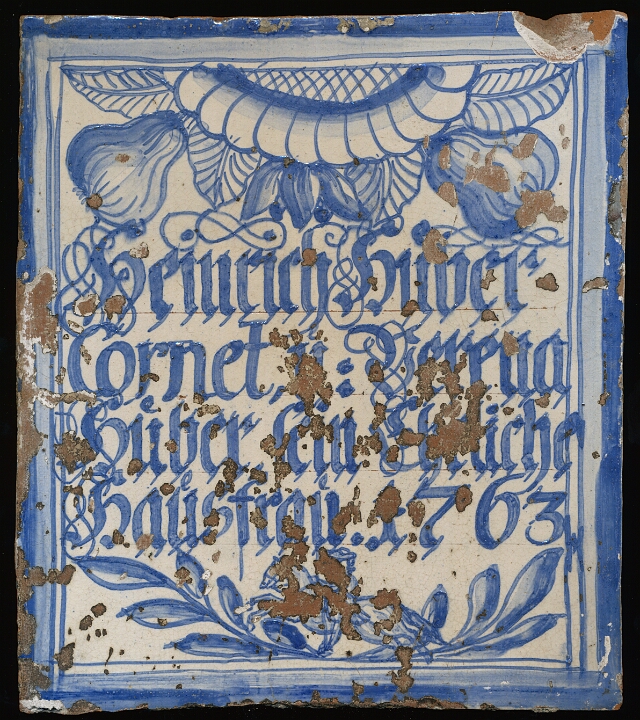 Heinrich Huber
Cornet, u: Verena
Huber, sein Ehliche
Hausfrau. 1763